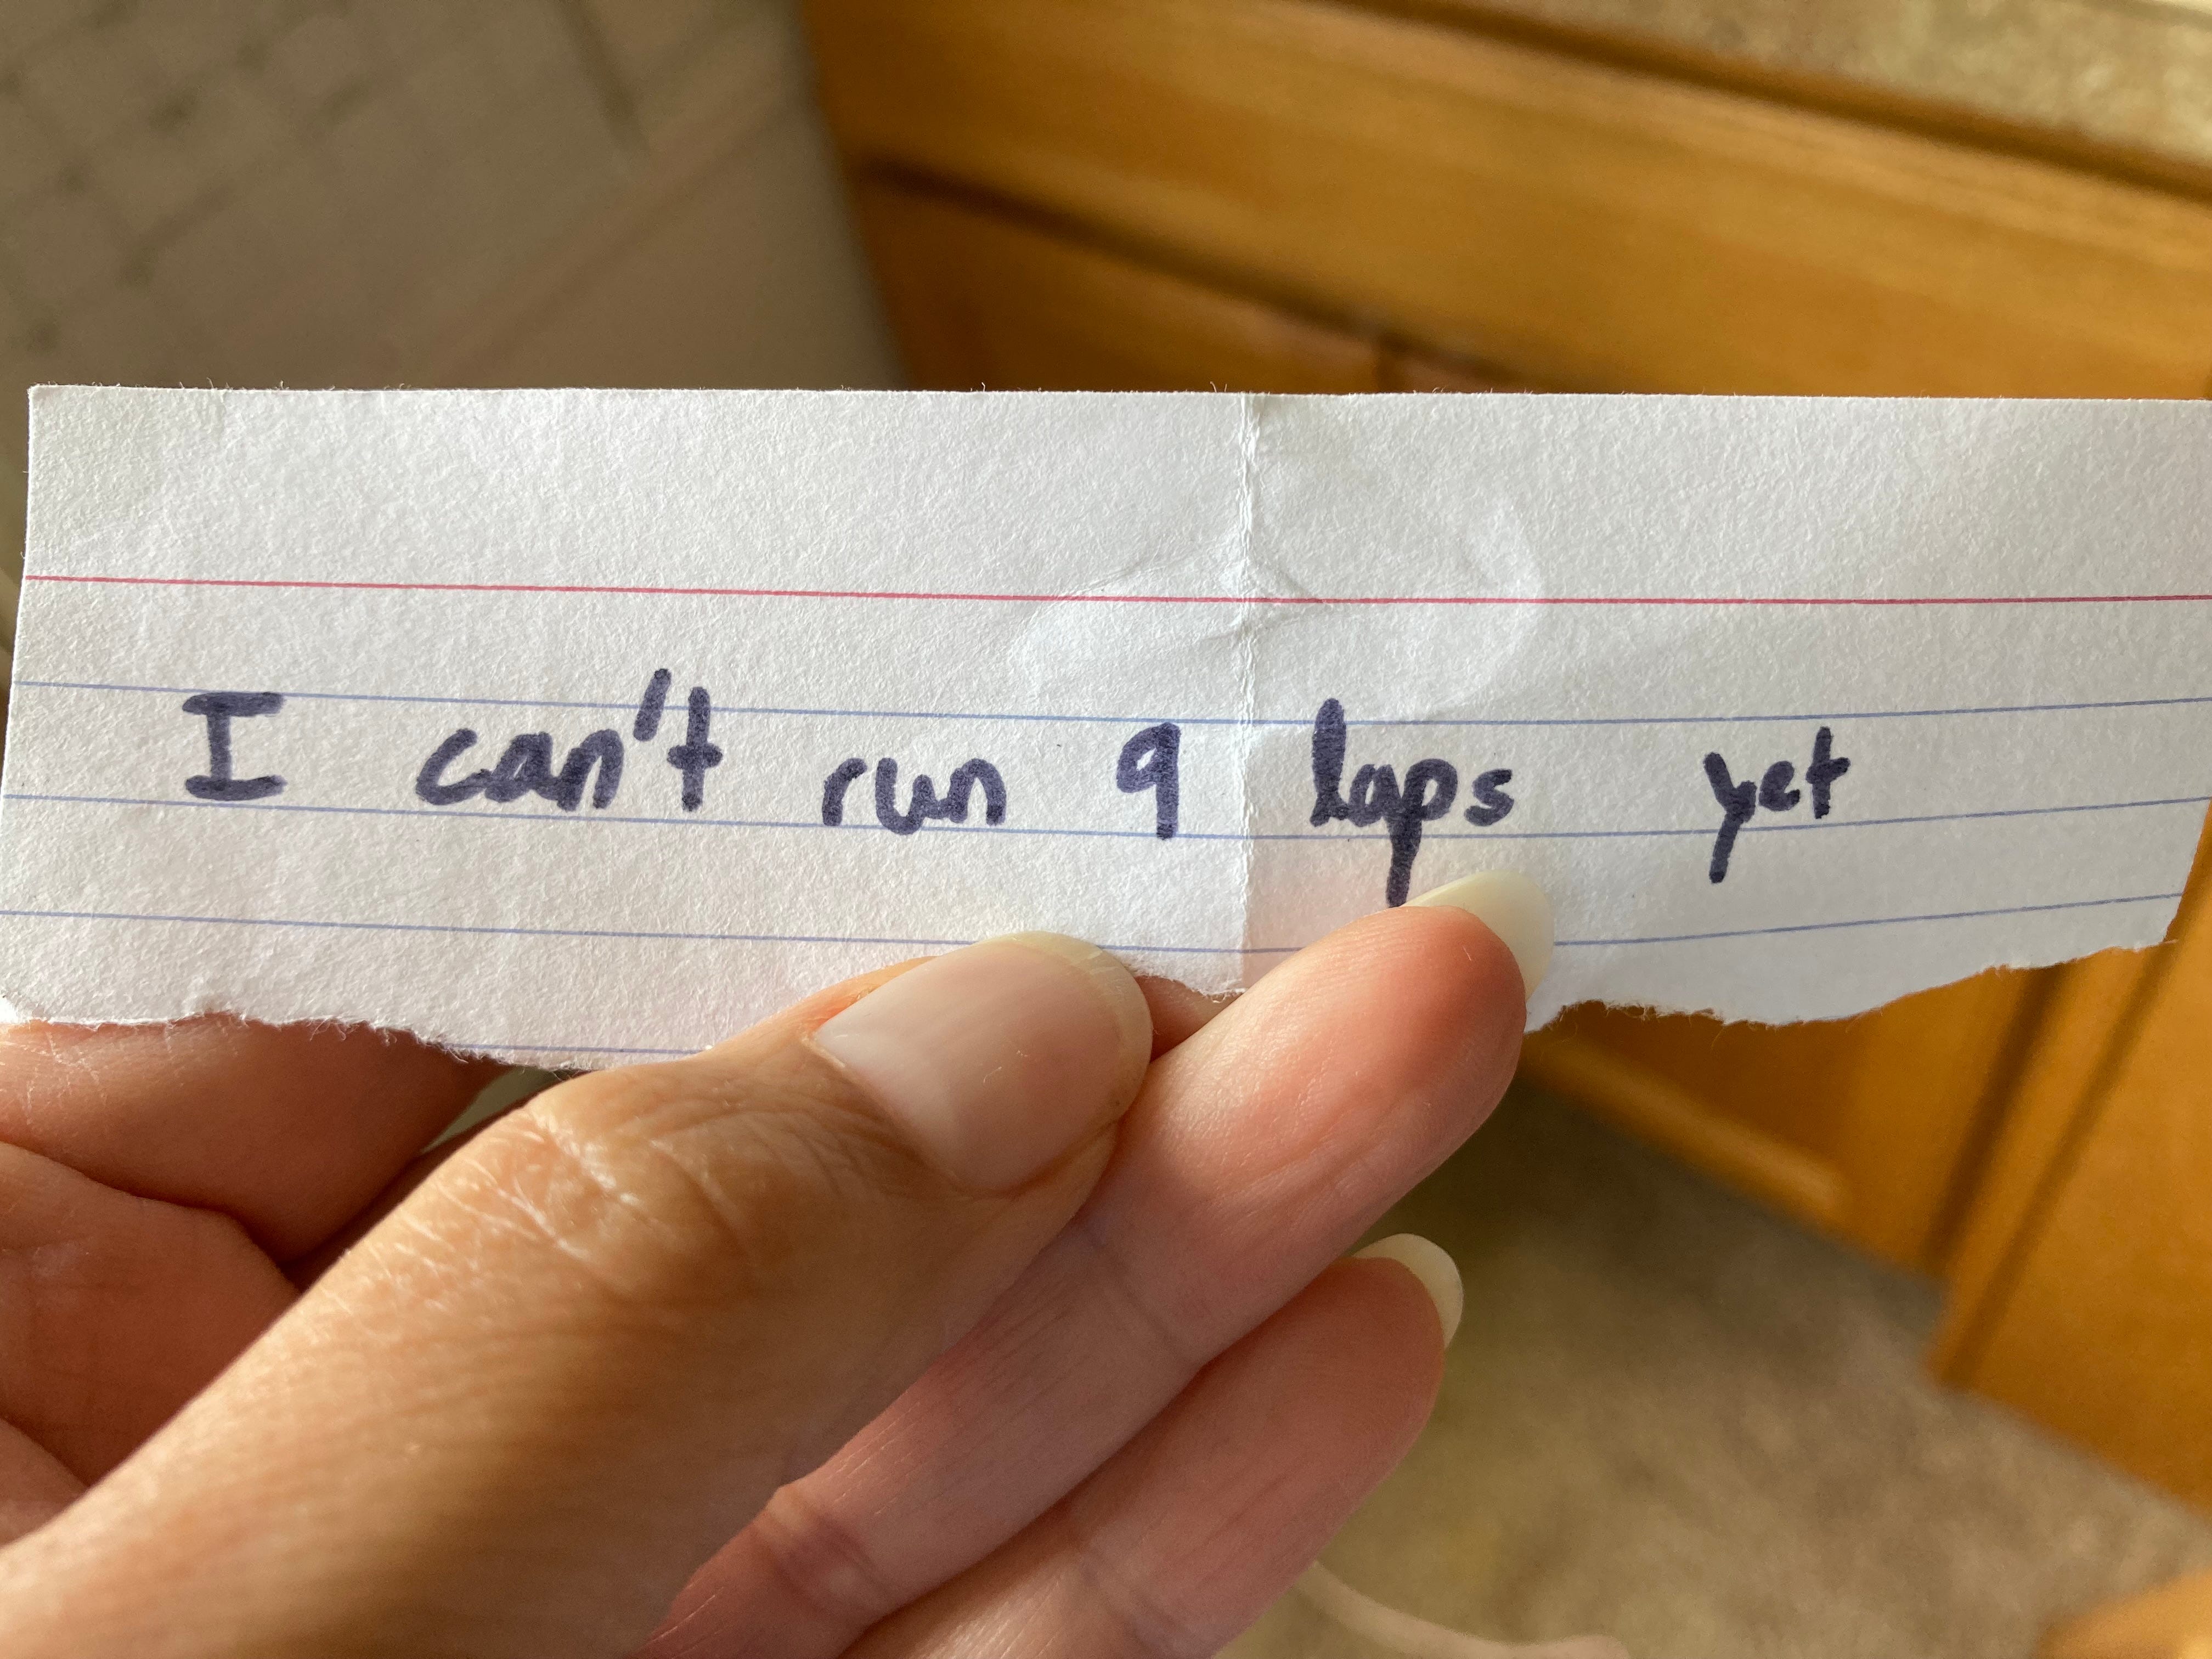 I can't run 9 laps yet